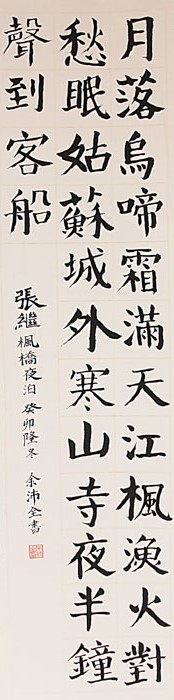 月落烏啼霜滿天江楓漁火對
愁眠姑蘇城外寒山寺夜半鐘
聲到客船
張繼楓橋夜泊癸卯隆冬余沛全書